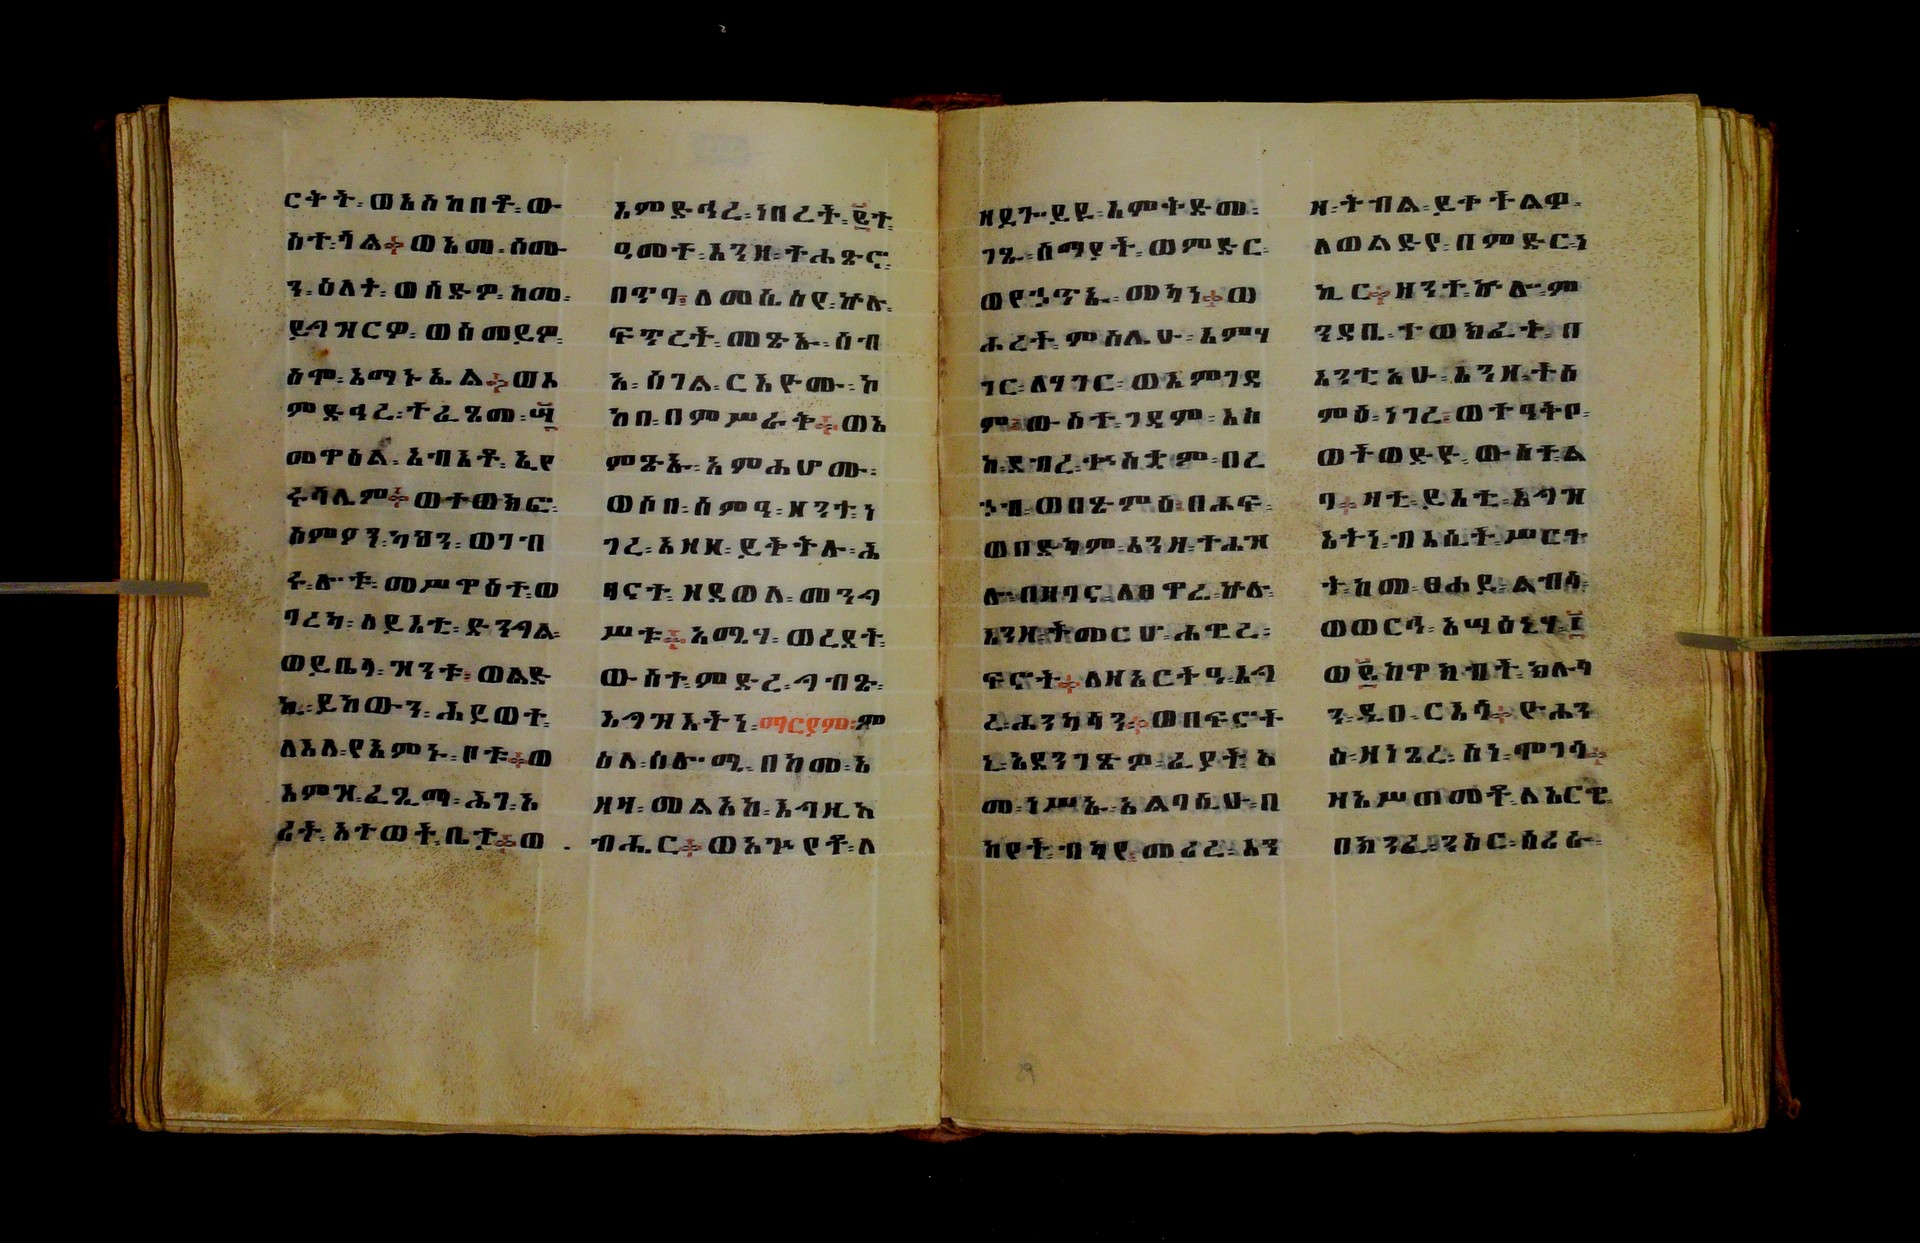 ርትት፡ ወእስከበቶ፡ ው
ስተ፡ ጎል፨ ወእመ፡ ሰሙ
ን፡ ዕለተ፡ ወሰድዎ፡ ከመ፡
ይግዝርዎ፡ ወሰመይዎ፡
ስሞ፡ አማኑኤል፨ ወእ
ምድኅረ፡ ተፈጸመ፡ ፵
መዋዕል፡ አብእቶ፡ ኢየ
ሩሳሌም፨ ወተወክፎ፡
ስምዖን፡ ካህን፡ ወገብ
ሩ፡ ሎቱ፡ መሥዋዕተ፡ ወ
ባረካ፡ ለይእቲ፡ ድንግል፡
ወይቤላ፡ ዝንቱ፡ ወልድ
ኪ፡ ይከውን፡ ሕይወተ፡
ለእለ፡ የአምኑ፡ ቦቱ፨ ወ
እምዝ፡ ፈጺማ፡ ሕገ፡ አ
ሪት፡ አተወት፡ ቤታ፨ ወ
እምድኅረ፡ ነበረት፡ ፪ተ፡
ዓመተ፡ እንዘ፡ ተሐፅኖ፡
በጥባ፡ ለመሴሰዪ፡ ኵሉ፡
ፍጥረት፡ መጽኡ፡ ሰብ
አ፡ ሰገል፡ ርእዮሙ፡ ኮ
ከበ፡ በምሥራቅ፨ ወእ
ምጽኡ፡ አምሐሆሙ፡
ወሶበ፡ ሰምዓ፡ ዘንተ፡ ነ
ገረ፡ አዘዘ፡ ይቅትሉ፡ ሕ
ፃናተ፡ ዘደወለ፡ መንግ
ሥቱ፨ አሜሃ፡ ወረደት፡
ውስተ፡ ምድረ፡ ግብጽ፡
እግዝእትነ፡ ማርያም፡ ም
ስለ፡ ሰሎሜ፡ በከመ፡ አ
ዘዛ፡ መልአከ፡ እግዚአ
ብሔር፨ ወአጕየቶ፡ ለ
ዘይጐይይ፡ እምቅድመ፡
ገጹ፡ ሰማያት፡ ወምድር፡
ወየኃጥኡ፡ መካነ፨ ወ
ሖረት፡ ምስሌሁ፡ እምሃ
ገር፡ ለሃገር፡ ወእምገዳ
ም፡ ውስተ፡ ገዳም፡ እስ
ከ፡ ደብረ፡ ቍስቋም፡ በረ
ኃብ፡ ወበጽምዕ፡ በሐፍ፡
ወበድካም፡ እንዘ፡ ተሐዝ
ሎ፡ በዘባና፡ ለፀዋሬ፡ ኵሉ፡
እንዘ፡ ትመርሆ፡ ሐዊረ፡
ፍኖት፨ ለዘአርትዓ፡ እግ
ረ፡ ሕንካሳን፨ ወበፍኖት
መ፡ ነሥኡ፡ አልባሲሁ፡ በ
ከየት፡ ብካየ፡ መሪረ፡ እን
ዘ፡ ትብል፡ ይተ ትልዎ፡
ለወልድየ፡ በምድር፡ ነ
ኪር፨ ዘንተ፡ ኵሎ፡ ም
ንዳቤ፡ ተወክፈት፡ በ
እንቲአሁ፡ እንዘ፡ ትሰ
ምዕ፡ ነገረ፡ ወተዓትቦ፡
ወትወድዮ፡ ውስተ፡ ል
ባ፨ ዛቲ፡ ይእቲ፡ እግዝ
እትነ፡ ብእሲት፡ ሥርጉ
ት፡ ከመ፡ ፀሐይ፡ ልብሳ፡
ወወርኅ፡ አሣዕኒሃ፡ ፲
ወ፪ከዋክብት፡ ክሉላ
ን፡ ዲበ፡ ርእሳ፨ ዮሐን
ስ፡ ዘነጸረ፡ ስነ፡ ሞገሳ፨
ዘአሥጠመት፡ ለአርዌ፡
በክንፈ፡ ንስር፡ ሰረረ፡